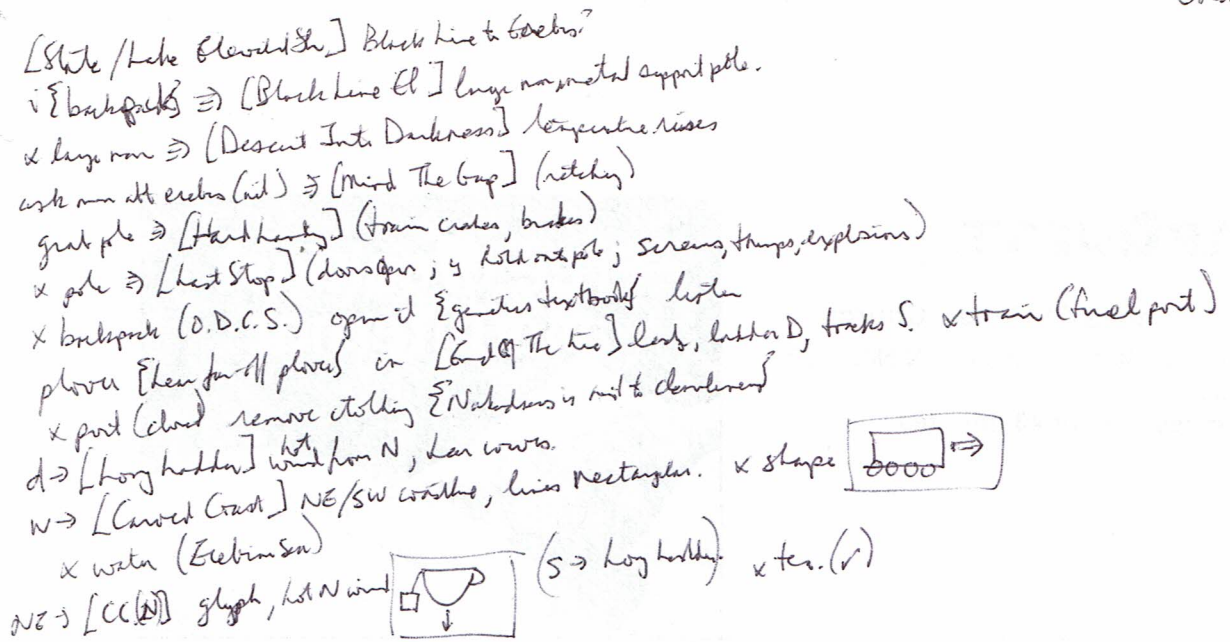 [State/Lake Elevated Stn.] Black Line to Erebus?
i {backpack} ⇒ [Black Line El] large man, metal support pole.
x large man ⇒ [Descent Into Darkness] temperature rises
ask man abt erebus (nil) ⇒ [Mind The Gap] (rotating)
grab pole ⇒ [Hard Landing] (train crashes, brakes)
x pole ⇒ [Last Stop] (doors open; y hold onto pole; screams, thumps, explosions)
x backpack (O.D.C.S.) open it {genetics textbook} listen
plover {hear far-off plover} in [End Of The Line] leads, ladder D, tracks S. x train (fuel port)
x port (closed) remove clothing {Nakedness is not to
d → [Long Ladder] hot wind from N, hear
N → [Carved Coast] NE/SW coastline, lines rectangular. x shape
x water (Erebian Sea) (S → Long Ladder)
NE → [CC(N)] glyph, hot N wind